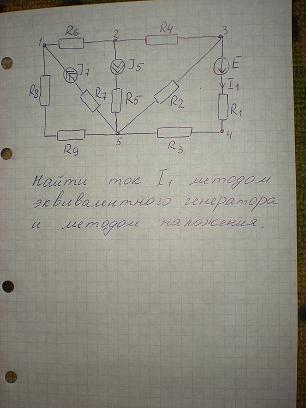 1 R6 2 R4 3
J7 J5 E
R8 R7 R5 R2 I1
R1
R9 5 R3 4
Найти ток I1 методом
эквивалентного генератора
и методом наложения.